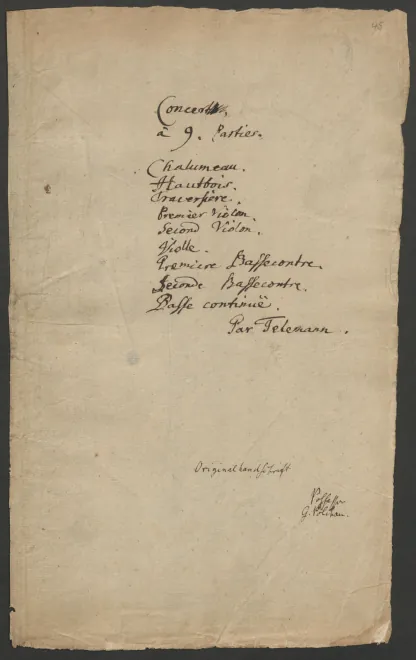 48
Concert
à 9. Parties.
Chalumeau.
Hautbois.
Traversière.
Premier Violon.
Second Violon.
Violle.
Premiere Bassecontre.
Seconde Bassecontre.
Basse continuë.
Par Telemann.
Originalhandschrift
Possessor
G. Pölchau.